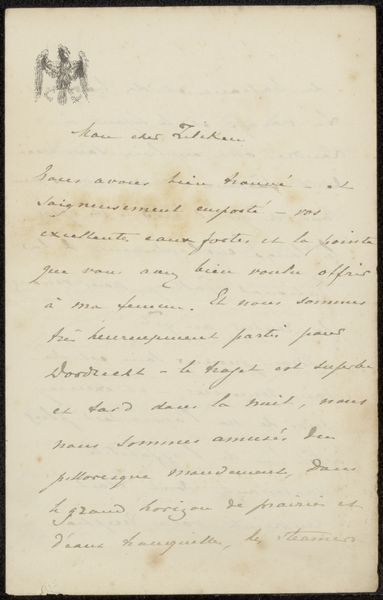 Mon cher Zilcken
Nous avons bien trouvé – et
soigneusement emporté – vos
excellentes eaux fortes et la pointe
que vous avez bien voulu offrir
à ma femme. Et nous sommes
très heureusement partis pour
Dordrecht – le trajet est superbe
et tard dans la nuit, nous
nous sommes amusés du
pittoresque mouvement, dans
le grand horizon de prairies et
d'eaux tranquilles, des steamers